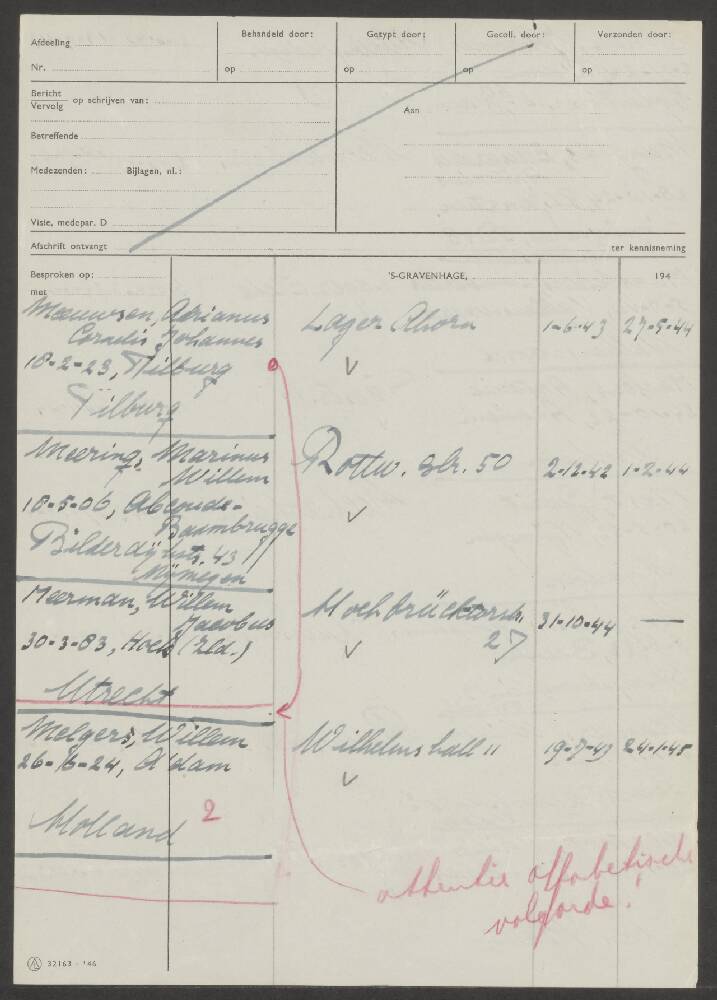 Afdeeling
Nr.
Behandeld door:
op
Getypt door:
op
Gecoll. door:
op
Verzonden door:
op
Bericht
Vervolg op schrijven van:
Betreffende
Medezenden: Bijlagen, nl.:
Visie, medepar. D
Aan
Afschrift ontvangt ter kennisneming
Besproken op:
met
'S-GRAVENHAGE, 194
Meeuwsen, Adrianus Lager Ahorn 1-6-43 27-5-44
Cornelis Johannes
18-2-23, Tilburg
Tilburg
Meering, Marinus Rottw. Str. 50 2-12-42 1-2-44
Willem
18-5-06, Abcoude-
Baambrugge
Bilderdijkstr. 43
Nijmegen
Meerman, Willem 31-10-44 —
Jacobus 27
30-3-83, Hoek (Zld.)
Utrecht
Melgers, Willem 11 19-7-43 24-1-45
26-6-24, A'dam
Holland 2
attentie alfabetische
volgorde!
32163 - '46